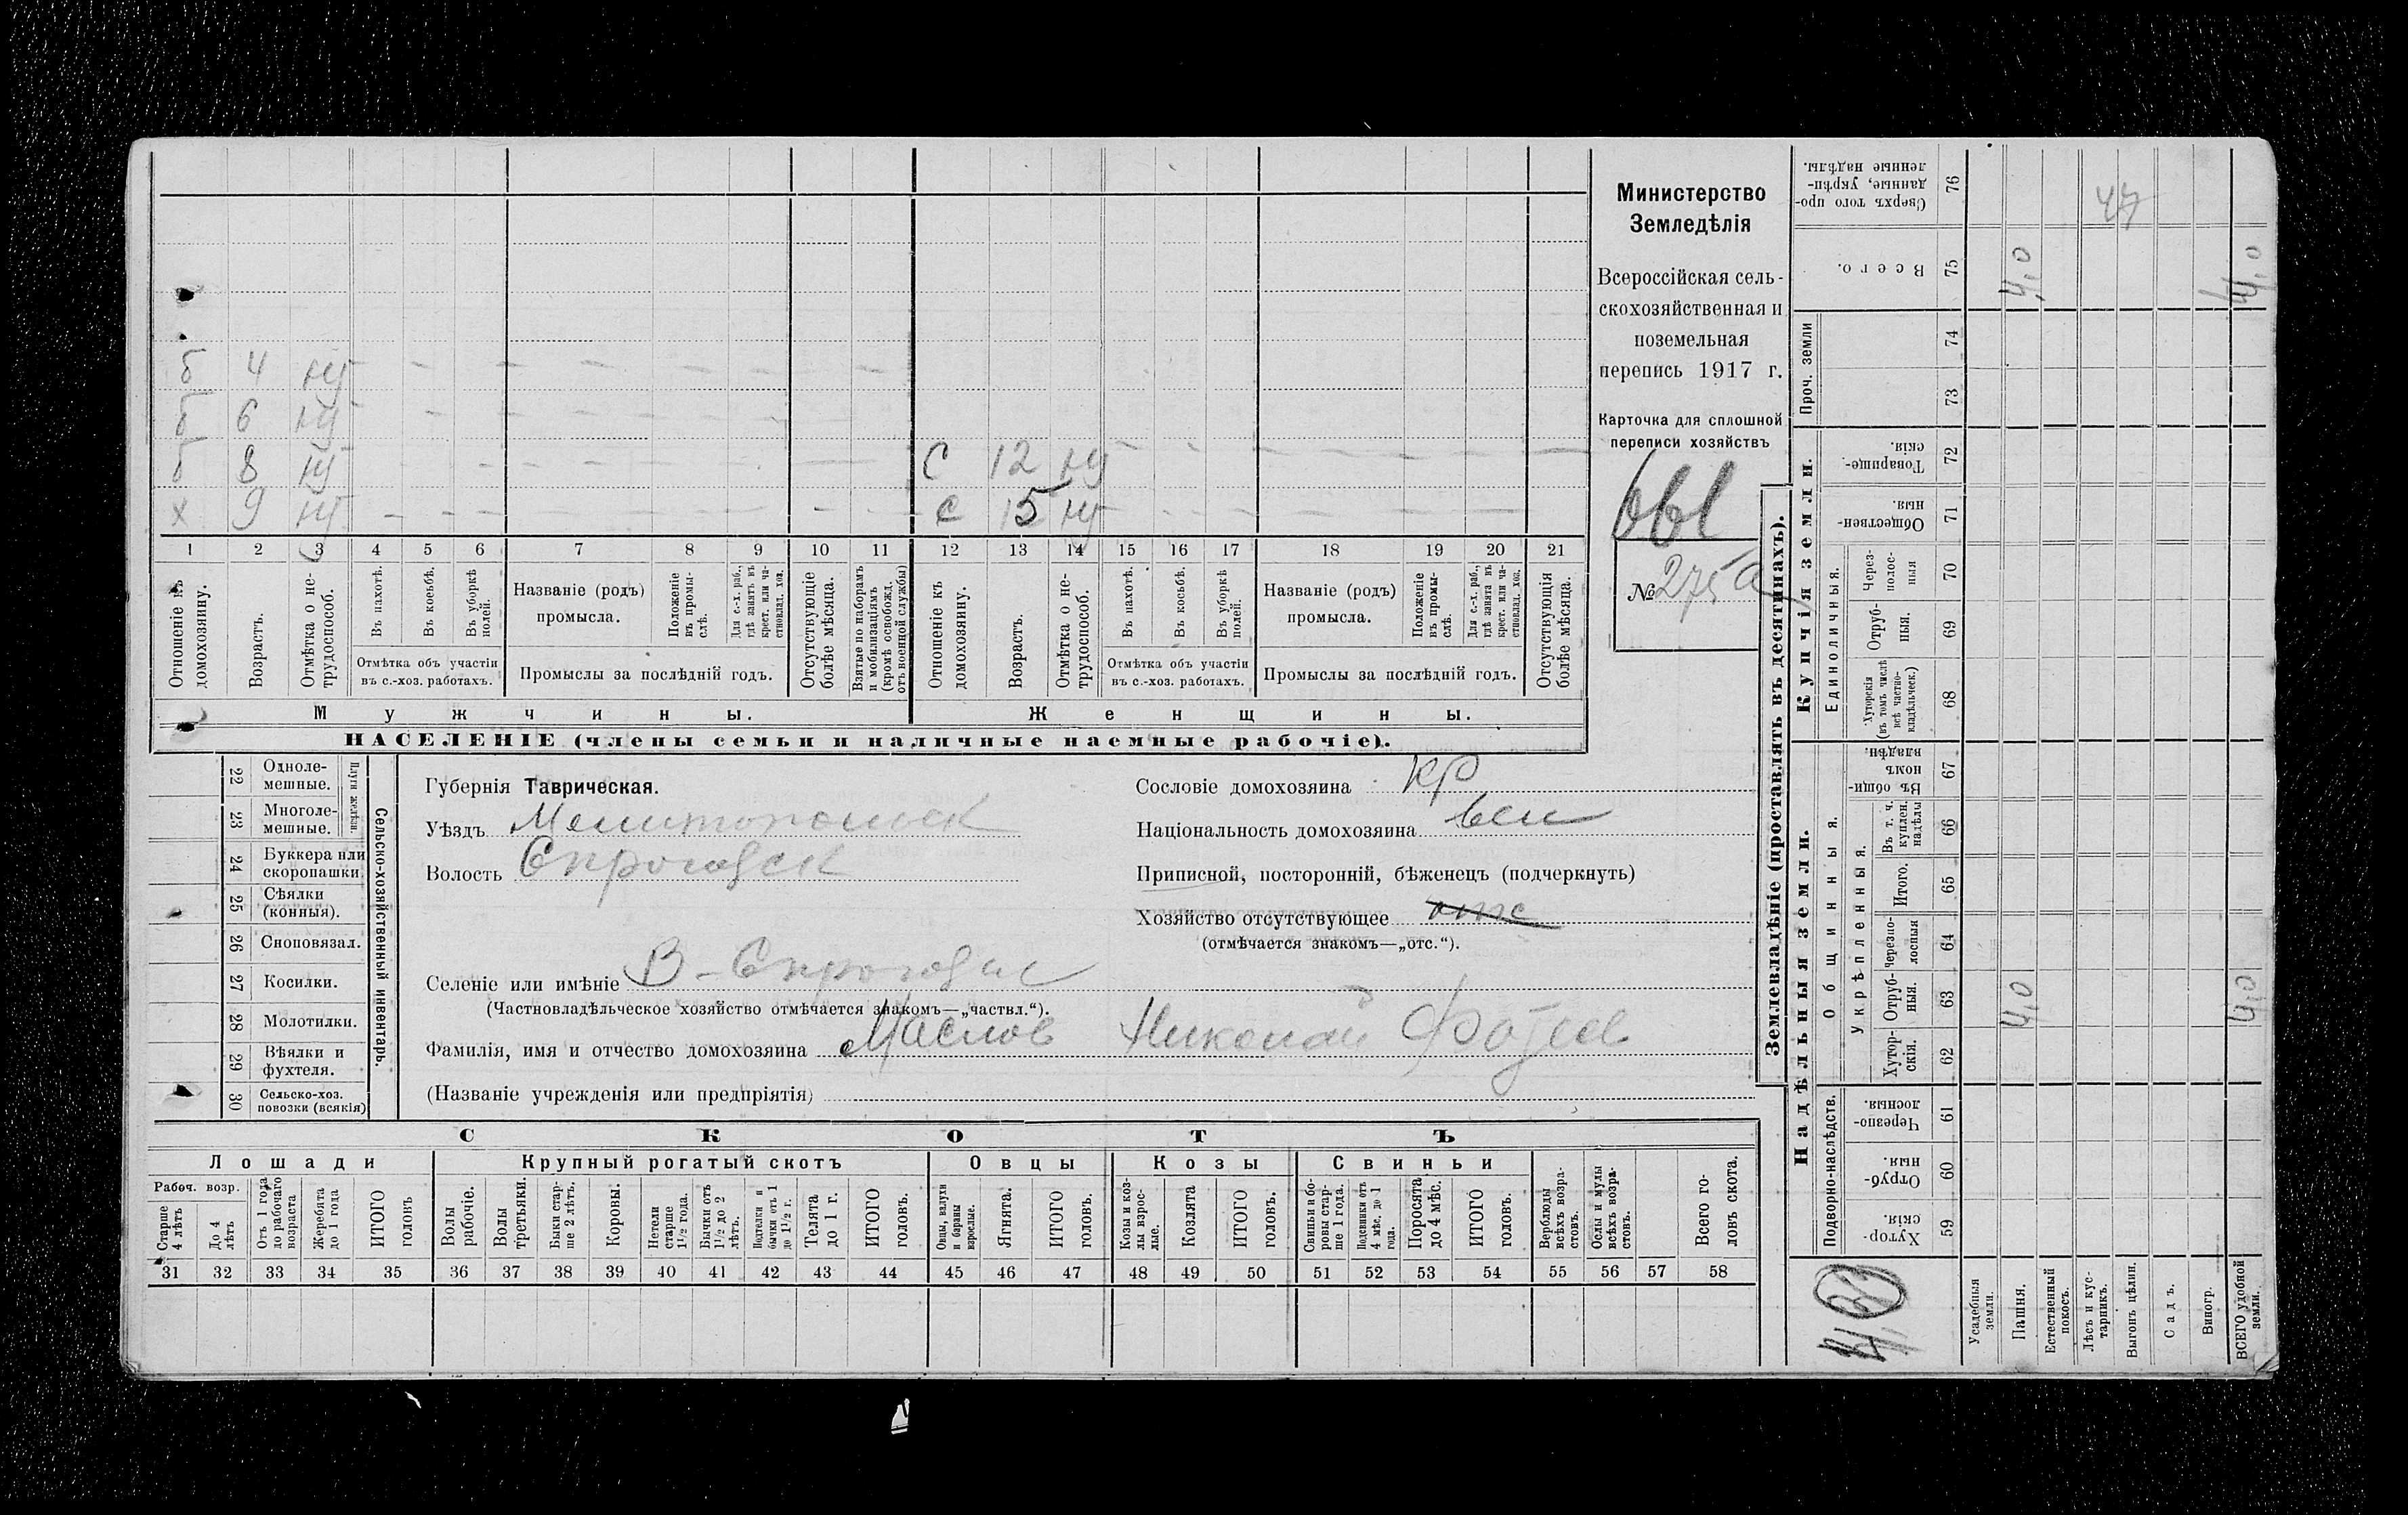 Министерство
Земледѣлія
Всероссійская сель-
скохозяйственная и
поземельная
перепись 1917 г.
Карточка для сплошной
переписи хозяйствъ
№ 275 а
б 4 – – – – – – –
б 6 – – – – – – –
б 8 – – – – – – – С 12 – – – – – – –
х 9 – – – – – – – С 15 – – – – – – –
1 2 3 4 5 6 7 8 9 10 11 12 13 14 15 16 17 18 19 20 21
Отношеніе къ домохозяину.
Возрастъ.
Отмѣтка о не-трудоспособ.
Въ пахотѣ.
Въ косьбѣ.
Въ уборкѣ полей.
Отмѣтка объ участіи
въ с.-хоз. работахъ.
Названіе (родъ)
промысла.
Положеніе въ промы-слѣ.
Для с.-х. раб., гдѣ занятъ въ крест. или ча-стновлад. хоз.
Промыслы за послѣдній годъ.
Отсутствующіе болѣе мѣсяца.
Взятые по наборамъ и мобилизаціямъ (кромѣ освобожд. отъ военной службы)
Отношеніе къ домохозяину.
Возрастъ.
Отмѣтка о не-трудоспособ.
Въ пахотѣ.
Въ косьбѣ.
Въ уборкѣ полей.
Отмѣтка объ участіи
въ с.-хоз. работахъ.
Названіе (родъ)
промысла.
Положеніе въ промы-слѣ.
Для с.-х. раб., гдѣ занята въ крест. или ча-стновлад. хоз.
Промыслы за послѣдній годъ.
Отсутствующія болѣе мѣсяца.
Мужчины. Женщины.
НАСЕЛЕНІЕ (члены семьи и наличные наемные рабочіе).
22 Одноле-мешные.
23 Многоле-мешные.
24 Буккера или скоропашки.
25 Сѣялки (конныя).
26 Сноповязал.
27 Косилки.
28 Молотилки.
29 Вѣялки и фухтеля.
30 Сельско-хоз. повозки (всякія)
Сельско-хозяйственный инвентарь.
Губернія Таврическая.
Уѣздъ Мелитопольск
Волость
Селеніе или имѣніе
(Частновладѣльческое хозяйство отмѣчается знакомъ—„частвл.“).
Фамилія, имя и отчество домохозяина Маслов Николай
(Названіе учрежденія или предпріятія)
Сословіе домохозяина кр
Національность домохозяина
Приписной, посторонній, бѣженецъ (подчеркнуть)
Хозяйство отсутствующее отс
(отмѣчается знакомъ—„отс.“).
СКОТЪ
Лошади Крупный рогатый скотъ Овцы Козы Свиньи
Рабоч. возр.
Старше 4 лѣтъ
До 4 лѣтъ
Отъ 1 года до рабочаго возраста
Жеребята до 1 года
ИТОГО головъ
Волы рабочіе.
Волы третьяки.
Быки стар-ше 2 лѣтъ.
Коровы.
Нетели старше 1½ года.
Бычки отъ 1½ до 2 лѣтъ.
Подтелки и бычки отъ 1 до 1½ г.
Телята до 1 г.
ИТОГО головъ.
Овцы, валухи и бараны взрослые.
Ягнята.
ИТОГО головъ.
Козы и коз-лы взрос-лые.
Козлята
ИТОГО головъ.
Свиньи и бо-ровы стар-ше 1 года.
Подсвинки отъ 4 мѣс. до 1 года.
Поросята до 4 мѣс.
ИТОГО головъ.
Верблюды всѣхъ возра-стовъ.
Ослы и мулы всѣхъ возра-стовъ.
Всего го-ловъ скота.
31 32 33 34 35 36 37 38 39 40 41 42 43 44 45 46 47 48 49 50 51 52 53 54 55 56 57 58
Землевладѣніе (проставлять въ десятинахъ).
Надѣльныя земли.
Купчія земли.
Проч. земли
Подворно-наслѣдств.
Общинныя.
Укрѣпленныя.
Единоличныя.
Хутор-скія. 59
Отруб-ныя. 60
Черезпо-лосныя. 61
Хутор-скія. 62
Отруб-ныя. 63 4,0 4,0
Черезпо-лосныя 64
Итого. 65
Въ т. ч. куплен. надѣлы 66
Въ общин-номъ владѣн. 67
Хуторскія (въ томъ числѣ всѣ частно-владѣльческ.) 68
Отруб-ныя. 69
Через-полос-ныя 70
Обществен-ныя. 71
Товарище-скія. 72
73
74
Всего. 75 4,0 4,0
Сверхъ того про-данные, укрѣп-ленные надѣлы. 76 47
Усадебныя земли.
Пашня.
Естественный покосъ.
Лѣсъ и кус-тарникъ.
Выгонъ цѣлин.
Садъ.
Виногр.
ВСЕГО удобной земли.